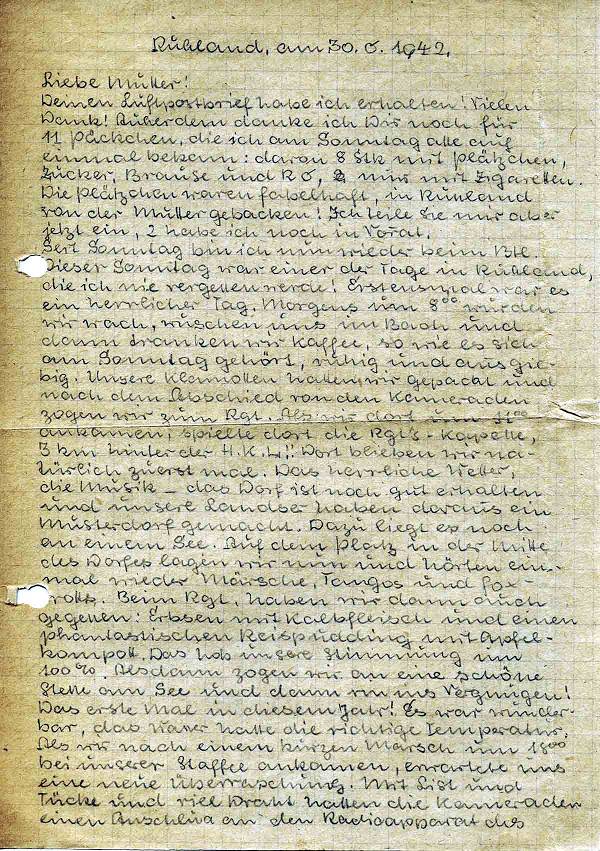 Rußland, am 30. 6. 1942.
Liebe Mutter!
Deinen Luftpostbrief habe ich erhalten! Vielen
Dank! Außerdem danke ich Dir noch für
11 Päckchen, die ich am Sonntag alle auf
einmal bekam: davon 8 Stk mit Plätzchen,
Zucker, Brause und 2 nur mit Zigaretten.
Die Plätzchen waren fabelhaft, in Rußland
von der Mutter gebacken! Ich teile sie nur aber
jetzt ein, 2 habe ich noch in Vorat.
Seit Sonntag bin ich nun wieder beim Btl.
Dieser Sonntag war einer der Tage in Rußland,
die ich nie vergessen werde! Erstensmal war es
ein herrlicher Tag. Morgens um 8⁰⁰ wurden
wir wach, wuschen uns im Bach und
dann tranken wir Kaffee, so wie es sich
am Sonntag gehört, ruhig und ausgie-
big. Unsere Klamotten hatten wir gepackt und
nach dem Abschied von den Kameraden
zogen wir zum Rgt. Als wir dort um 11⁰⁰
ankamen, spielte dort die Rgt's-Kapelle,
3 km hinter der H.K.L.!! Dort blieben wir na-
türlich zuerst mal. Das herrliche Wetter,
die Musik – das Dorf ist noch gut erhalten
und unsere Landser haben daraus ein
Musterdorf gemacht. Dazu liegt es noch
an einem See. Auf dem Platz in der Mitte
des Dorfes lagen wir nun und hörten ein-
mal wieder Märsche, Tangos und Fox-
trotts. Beim Rgt. haben wir dann auch
gegessen: Erbsen mit Kalbfleisch und einen
phantastischen Reispudding mit Apfel-
kompott. Das hob unsere Stimmung um
100%. Alsdann zogen wir an eine schöne
Stelle am See und dann rin ins Vergnügen!
Das erste Mal in diesem Jahr! Es war wunder-
bar, das Wasser hatte die richtige Temperatur.
Als wir nach einem kurzen Marsch um 18⁰⁰
bei unserer Staffel ankamen, erwartete uns
eine neue Überraschung. Mit List und
Tücke und viel Draht hatten die Kameraden
einen Anschluß an den Radioapparat des